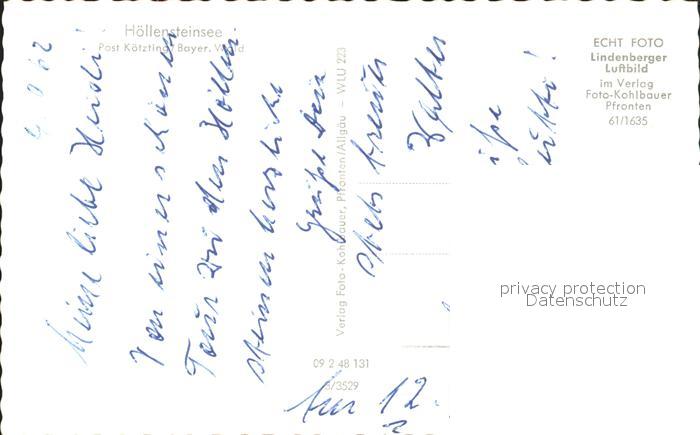 Höllensteinsee
Post Kötzting/Bayer. Wald
ECHT FOTO
Lindenberger
Luftbild
im Verlag
Foto-Kohlbauer
Pfronten
61/1635
Meine liebe Heidi!
Von einer schönen
Tour zu den Höllen-
steinen herzliche
Grüße Dein
stets treuer
Walter
Verlag Foto-Kohlbauer, Pfronten/Allgäu – WLU 223
09 2 48 131
5/3529
12.
privacy protection
Datenschutz